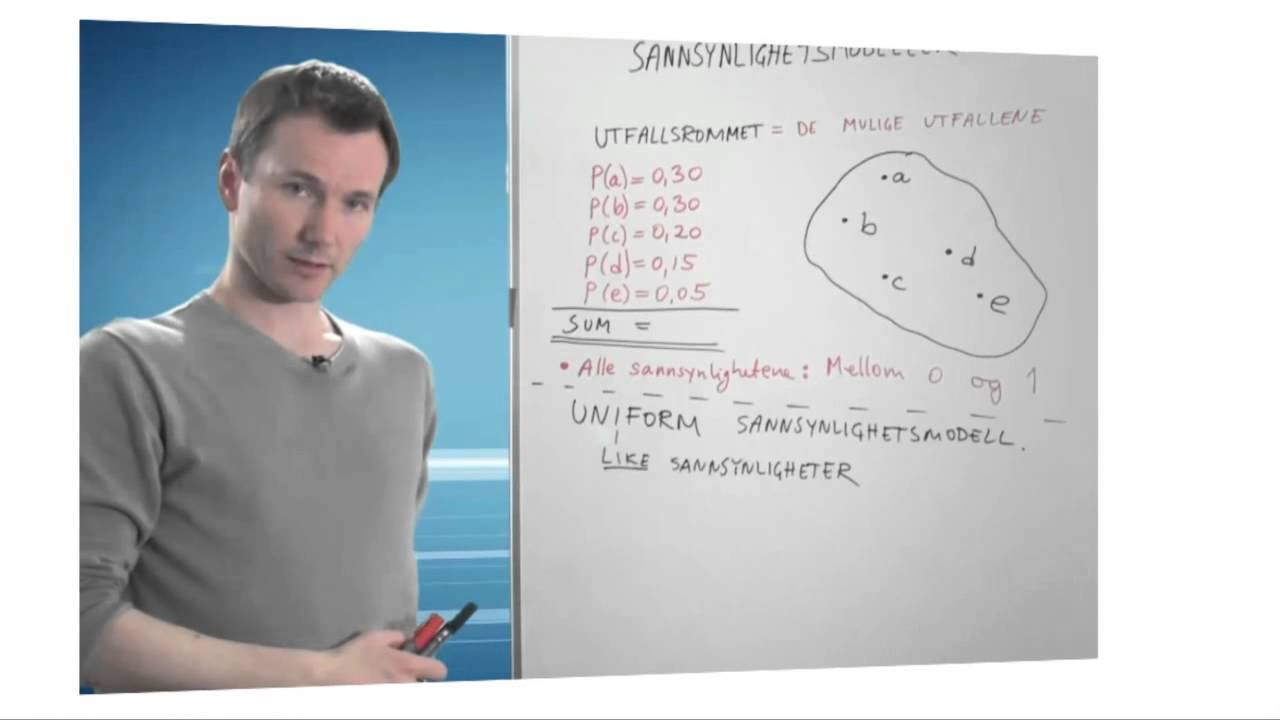 SANNSYNLIGHETSMODELLER
UTFALLSROMMET = DE MULIGE UTFALLENE
P(a) = 0,30
P(b) = 0,30
P(c) = 0,20
P(d) = 0,15
P(e) = 0,05
SUM =
a
b
d
c
e
• Alle sannsynlighetene: Mellom 0 og 1
UNIFORM SANNSYNLIGHETSMODELL.
LIKE SANNSYNLIGHETER